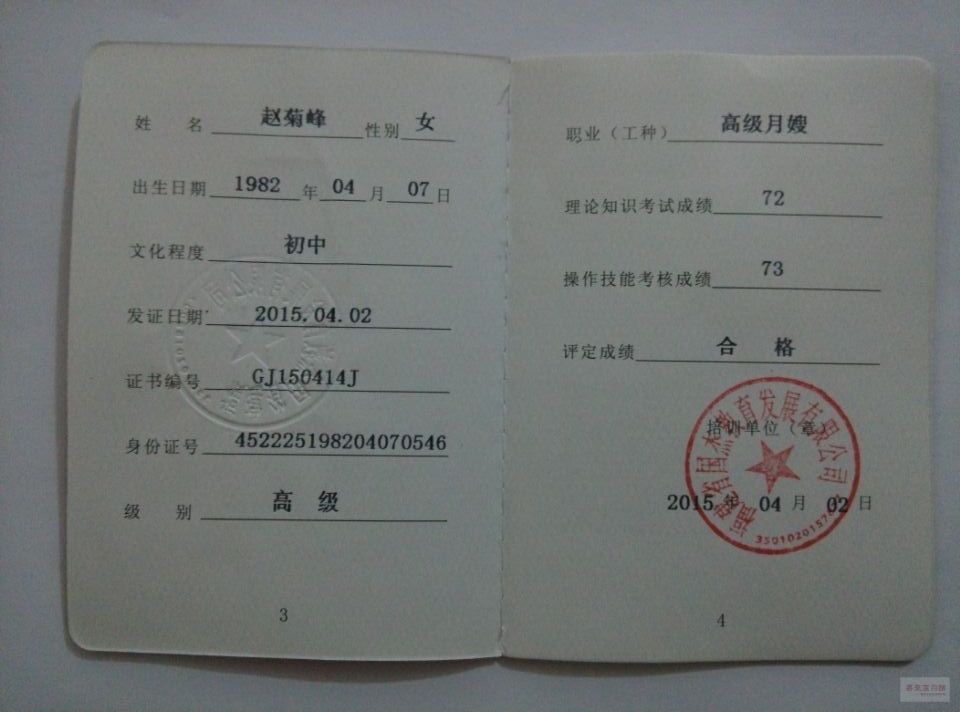 姓 名 赵菊峰 性别 女
出生日期 1982 年 04 月 07 日
文化程度 初中
发证日期 2015.04.02
证书编号 GJ150414J
身份证号 452225198204070546
级 别 高 级
3
职业（工种） 高级月嫂
理论知识考试成绩 72
操作技能考核成绩 73
评定成绩 合 格
培训单位（章）
福建省国杰教育发展有限公司
2015 年 04 月 02 日
4